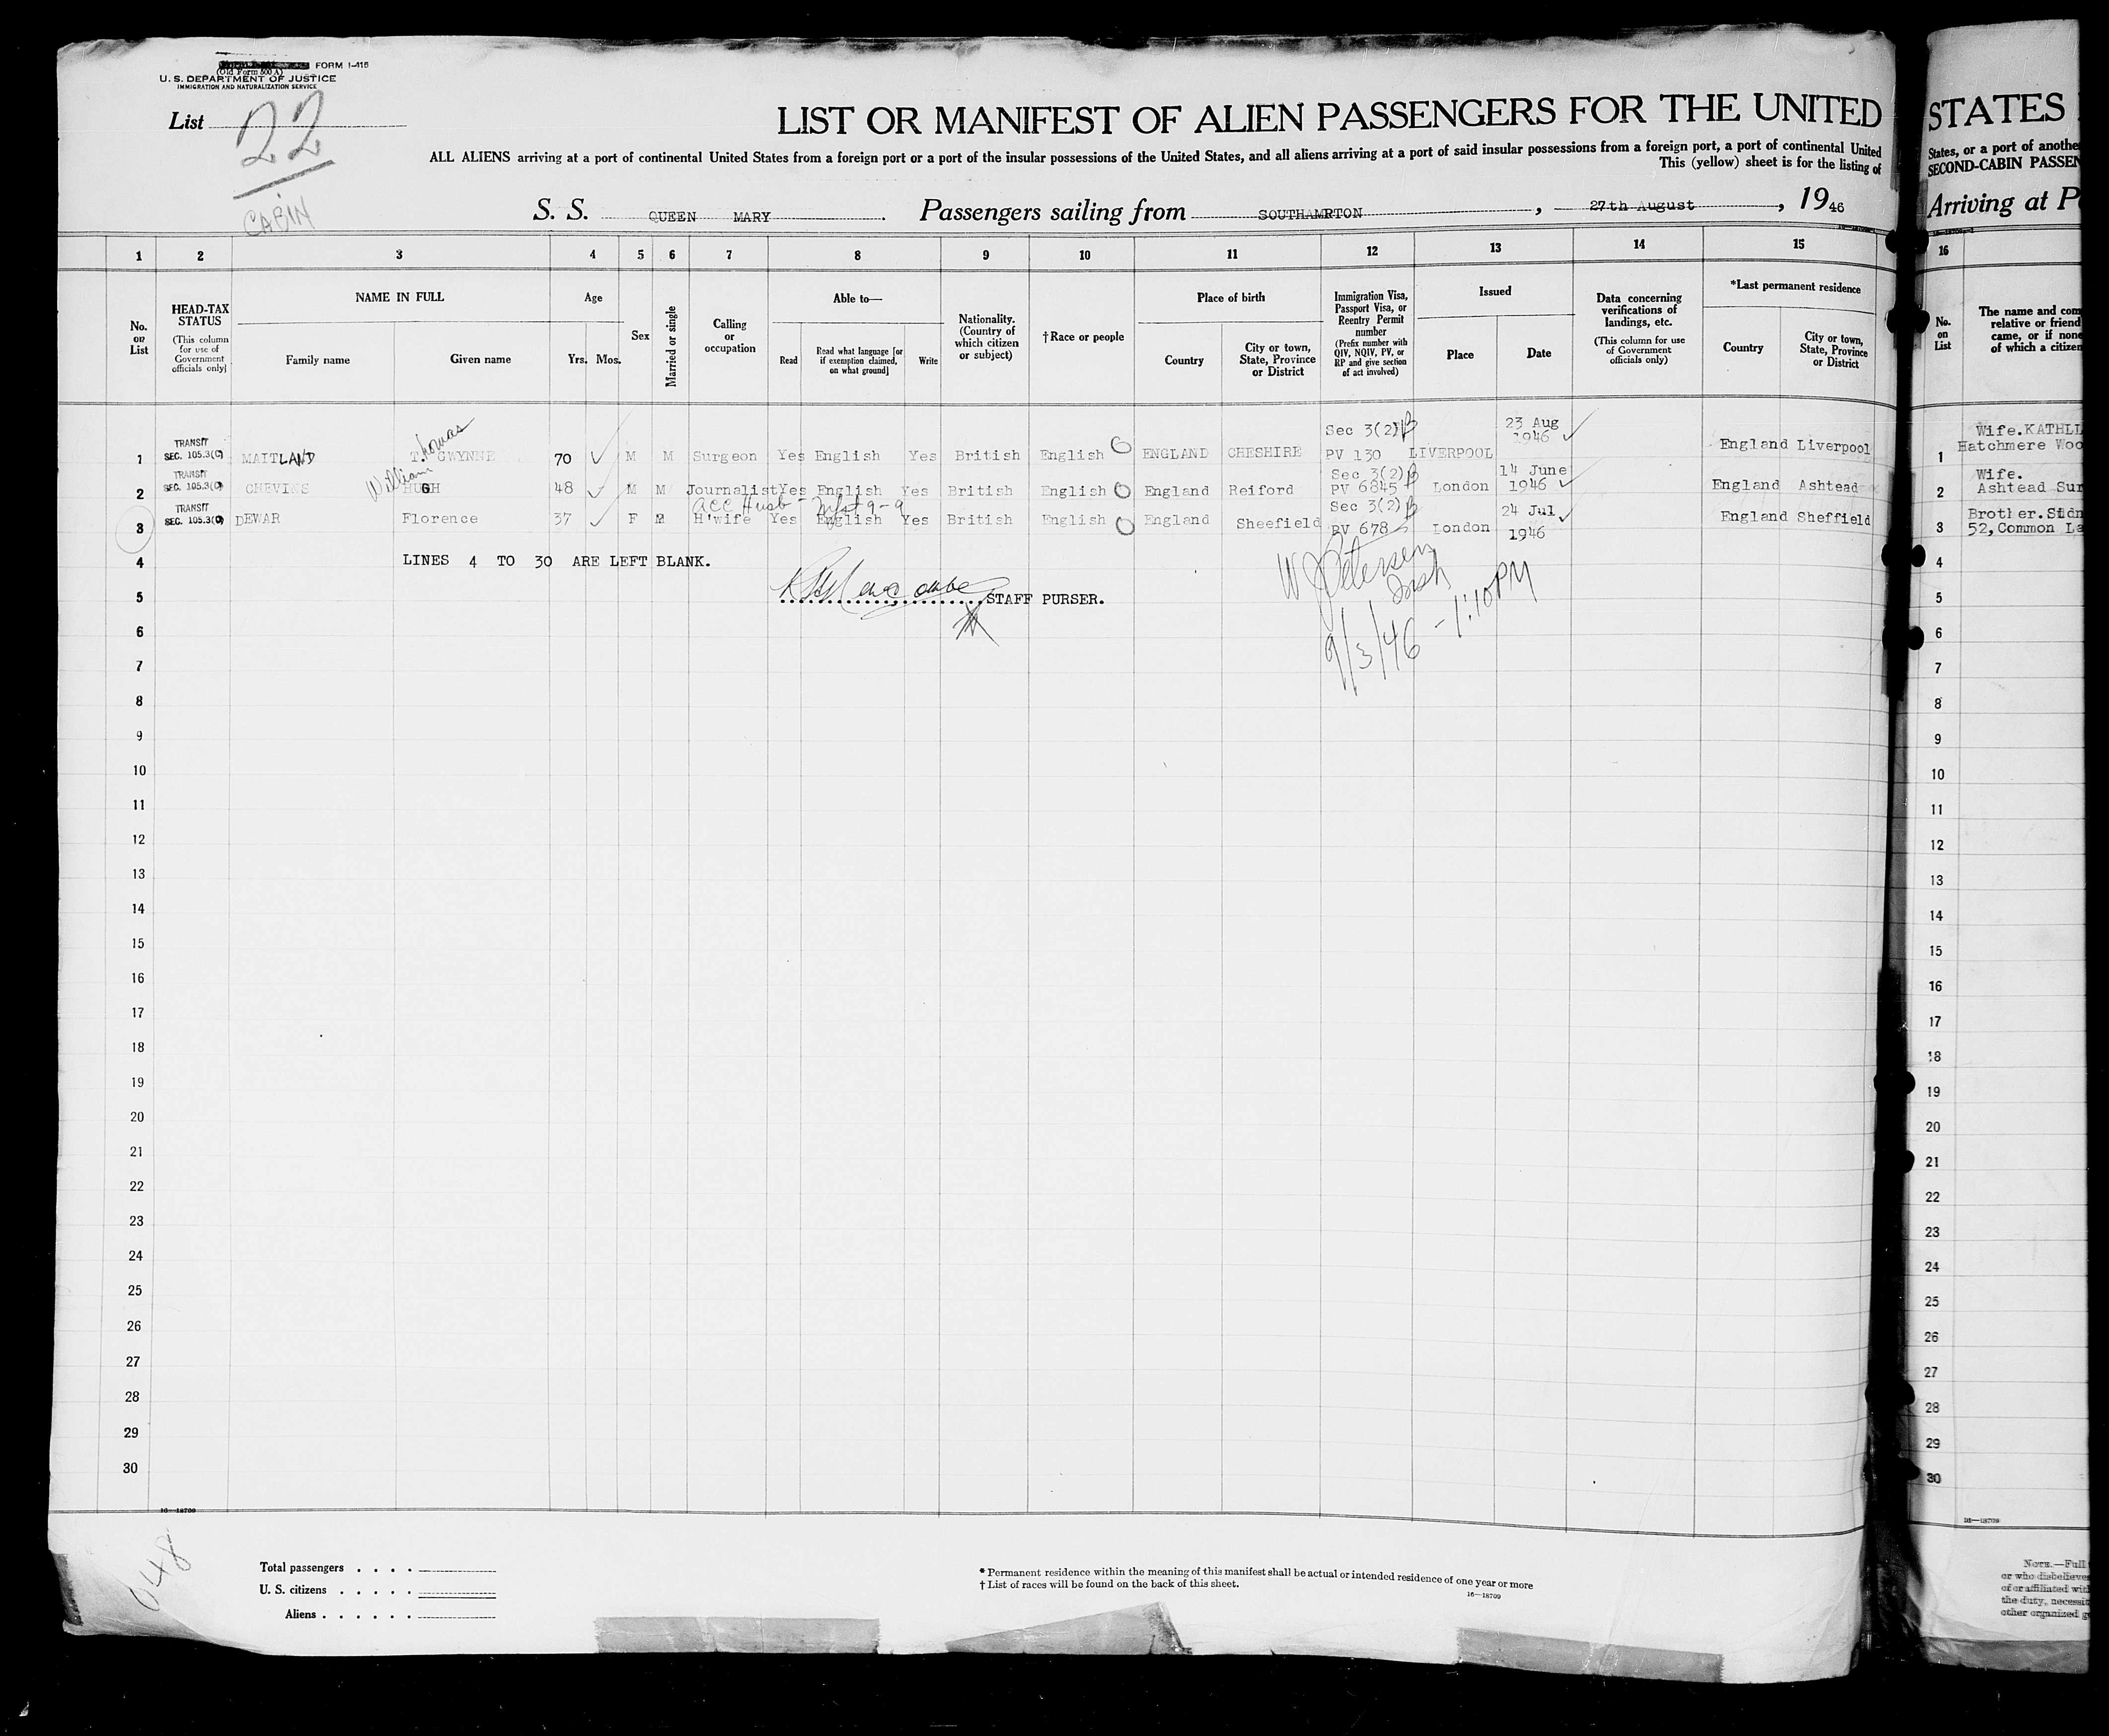 FORM I-415
(Old Form 500 A)
U. S. DEPARTMENT OF JUSTICE
IMMIGRATION AND NATURALIZATION SERVICE
List 22
CABIN
LIST OR MANIFEST OF ALIEN PASSENGERS FOR THE UNITED
ALL ALIENS arriving at a port of continental United States from a foreign port or a port of the insular possessions of the United States, and all aliens arriving at a port of said insular possessions from a foreign port, a port of continental United
This (yellow) sheet is for the listing of
S. S. QUEEN MARY. Passengers sailing from SOUTHAMPTON, 27th August, 1946
1 2 3 4 5 6 7 8 9 10 11 12 13 14 15
No. on List
HEAD-TAX STATUS
(This column for use of Government officials only)
NAME IN FULL
Family name Given name
Age
Yrs. Mos.
Sex
Married or single
Calling or occupation
Able to—
Read
Read what language [or if exemption claimed, on what ground]
Write
Nationality. (Country of which citizen or subject)
†Race or people
Place of birth
Country
City or town, State, Province or District
Immigration Visa, Passport Visa, or Reentry Permit number
(Prefix number with QIV, NQIV, PV, or RP and give section of act involved)
Issued
Place Date
Data concerning verifications of landings, etc.
(This column for use of Government officials only)
*Last permanent residence
Country
City or town, State, Province or District
1 TRANSIT SEC. 105.3(C) MAITLAND T.homas GWYNNE 70 M M Surgeon Yes English Yes British English ENGLAND CHESHIRE Sec 3(2) PV 130 LIVERPOOL 23 Aug 1946 England Liverpool
2 TRANSIT SEC. 105.3(C) CHEVINS William HUGH 48 M M Journalist Yes English Yes British English England Reiford Sec 3(2) PV 6845 London 14 June 1946 England Ashtead
acc Husb - Mfst 9-9
3 TRANSIT SEC. 105.3(C) DEWAR Florence 37 F M H'wife Yes English Yes British English England Sheefield Sec 3(2) PV 678 London 24 Jul 1946 England Sheffield
4 LINES 4 TO 30 ARE LEFT BLANK.
5 STAFF PURSER.
W J Petersen
Insh
9/3/46 - 1:10 PM
6
7
8
9
10
11
12
13
14
15
16
17
18
19
20
21
22
23
24
25
26
27
28
29
30
16—18709
648
Total passengers
U. S. citizens
Aliens
* Permanent residence within the meaning of this manifest shall be actual or intended residence of one year or more
† List of races will be found on the back of this sheet.
16—18709
STATES
States, or a port of anothe
SECOND-CABIN PASSEN
Arriving at P
16
No. on List
The name and com
relative or friend
came, or if none
of which a citizen
1 Wife.KATHLL
Hatchmere Woo
2 Wife.
Ashtead Sur
3 Brother.Sidn
52,Common La
4
5
6
7
8
9
10
11
12
13
14
15
16
17
18
19
20
21
22
23
24
25
26
27
28
29
30
16—18709
NOTE.—Full
or who disbelieves
of or affiliated wit
the duty, necessit
other organized g